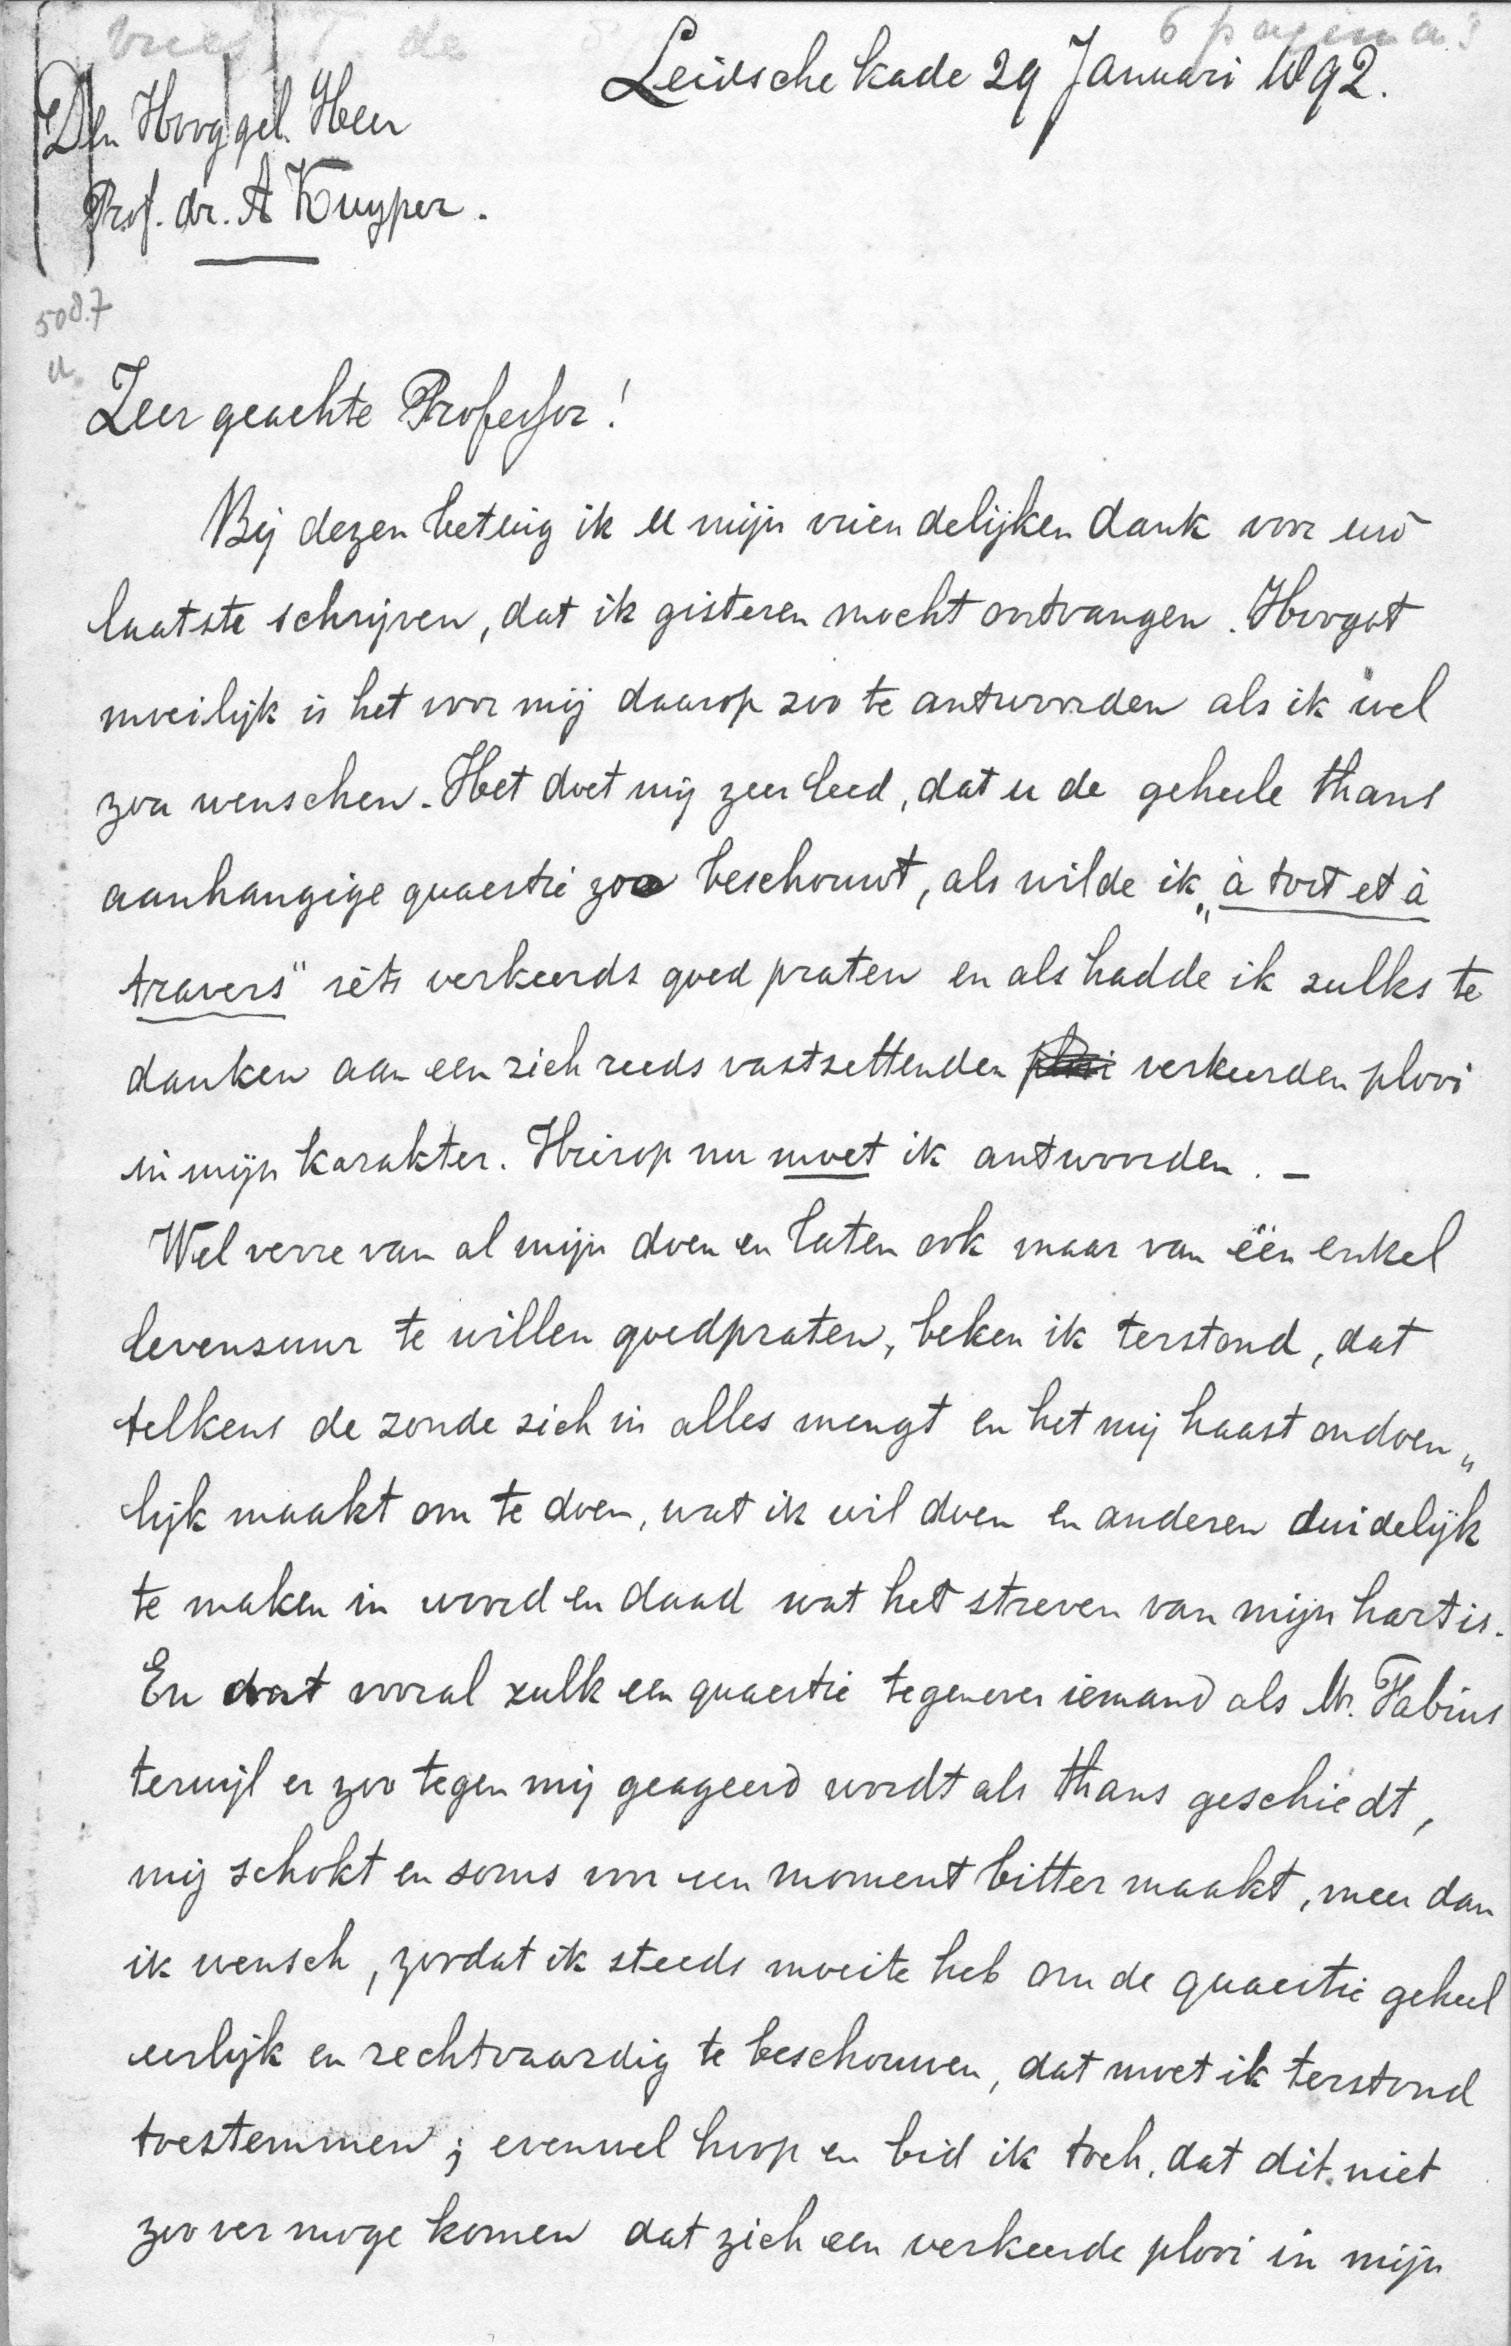 Vries, T. de
6 pagina's
Leidsche kade 29 Januari 1892.
Den Hooggel. Heer
Prof. dr. A Kuyper.
5087
a.
Zeer geachte Professor!
Bij dezen betuig ik U mijn vriendelijken dank voor uw
laatste schrijven, dat ik gisteren mocht ontvangen. Hoogst
moeilijk is het voor mij daarop zoo te antwoorden als ik wel
zou wenschen. Het doet mij zeer leed, dat u de geheele thans
aanhangige quaestie zoo beschouwt, als wilde ik „à tort et à
travers" iets verkeerds goed praten en als hadde ik zulks te
danken aan een zich reeds vastzettenden plooi verkeerden plooi
in mijn karakter. Hierop nu moet ik antwoorden. –
Wel verre van al mijn doen en laten ook maar van één enkel
levensuur te willen goedpraten, beken ik terstond, dat
telkens de zonde zich in alles mengt en het mij haast ondoen„
lijk maakt om te doen, wat ik wil doen en anderen duidelijk
te maken in woord en daad wat het streven van mijn hart is.
En dat vooral zulk een quaestie tegenover iemand als Mr. Fabius
terwijl er zoo tegen mij geageerd wordt als thans geschiedt,
mij schokt en soms voor een moment bitter maakt, meer dan
ik wensch, zoodat ik steeds moeite heb om de quaestie geheel
eerlijk en rechtvaardig te beschouwen, dat moet ik terstond
toestemmen; evenwel hoop en bid ik toch, dat dit niet
zoo ver moge komen dat zich een verkeerde plooi in mijn